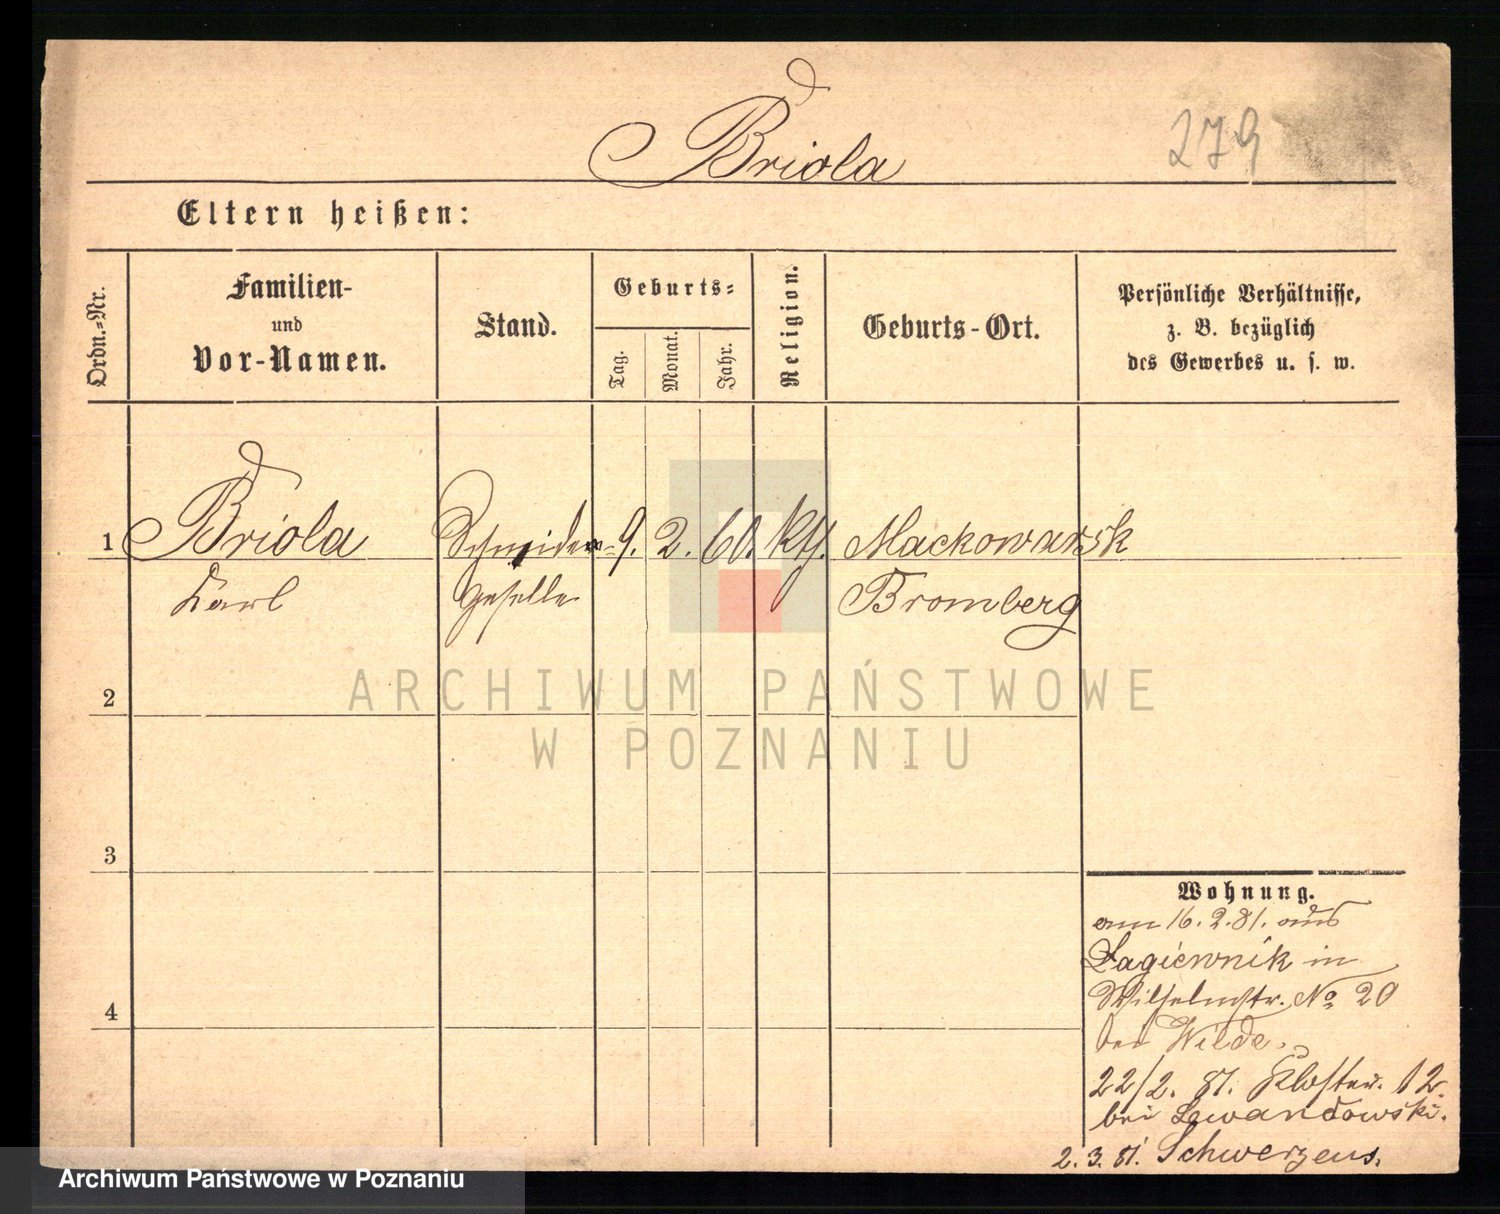 Briola
279
Eltern heißen:
Ordn.=Nr.
Familien-
und
Vor-Namen.
Stand.
Geburts=
Tag.
Monat.
Jahr.
Religion.
Geburts-Ort.
Persönliche Verhältnisse,
z. B. bezüglich
des Gewerbes u. s. w.
1 Briola Schneider= 9. 2. 60. kth. Mackowarsk
Karl geselle Bromberg
2
3
4
Wohnung.
am 16. 2. 81. aus
Lagiewnik in
Wilhelmstr. No 20
bei Wilde.
22/2. 81. Kloster. 12.
bei Lewandowski.
2. 3. 81. Schwersens.
ARCHIWUM PAŃSTWOWE
W POZNANIU
Archiwum Państwowe w Poznaniu